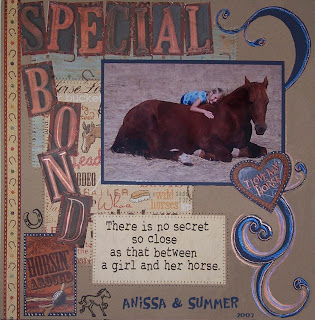 SPECIAL
BOND
wild
horses
I LOVE MY
HORSE
There is no secret
so close
as that between
a girl and her horse.
HORSIN'
AROUND
ANISSA & SUMMER
2007